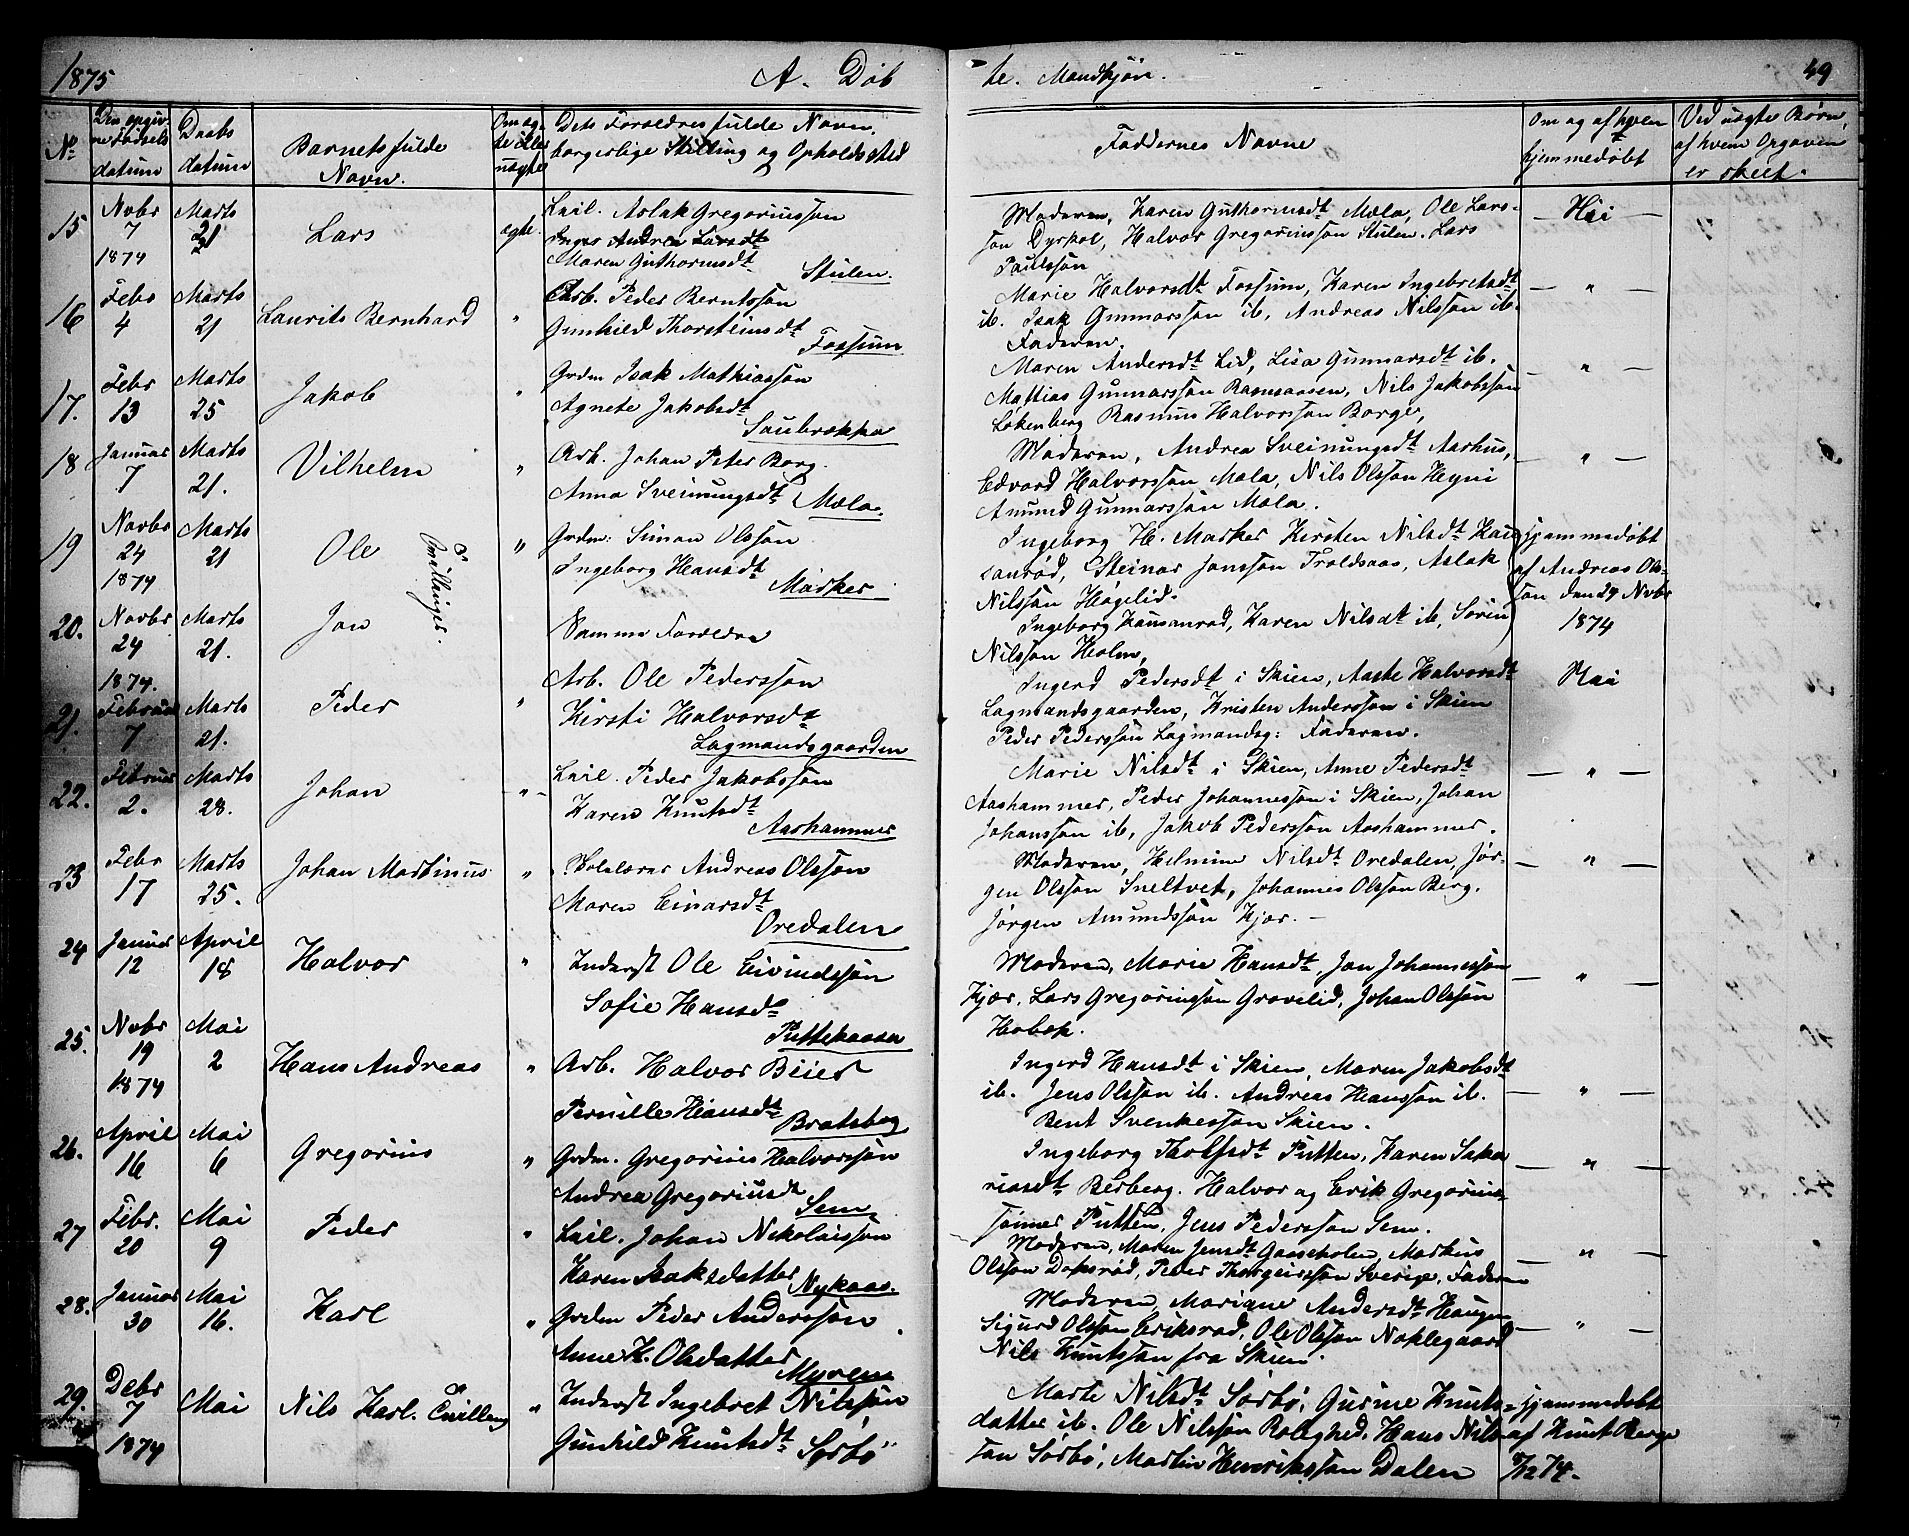 1875 A. Døb te. Mandkjøn. 49
No
Den opgiv
ne Fødsels
datum
Daabs
datum
Barnets fulde
Navn.
Om æg-
te eller
uægte
Dets Forældres fulde Navn,
borgerlige Stilling og Opholds Sted
Faddernes Navne
Om og af hvem
hjemmedøbt
Ved uægte Børn,
af hvem Opgaven
er skeet.
15
Novbr
7
1874
Marts
21
Lars
ægte
Leil. Aslak Gregoriussøn
Inger Andrea Larsdt
Maren Guthormsdt
Stulen.
Moderen, Karen Guthormsdt Mæla, Ole Lars-
søn Dyrkol, Halvor Gregoriussøn Stulen. Lars
Paulssøn
Nei
16
Febr
4
Marts
21
Laurits Bernhard
"
Arb. Peder Berntssøn
Gunhild Thorsteinsdt
Fossum.
Marie Halvorsdt Fossum, Karen Ingebretsdt
ib. Isak Gunnarssøn ib, Andreas Nilssøn ib.
Faderen.
— " —
17.
Febr
13
Marts
25
Jakob
"
Grdm Isak Mathiassøn
Agnete Jakobsdt
Saubrekka
Maren Andersdt Lid, Lisa Gunnarsdt ib.
Mattias Gunnarssøn Rasmaasen, Nils Jakobssøn
Løkenberg Rasmus Halvorssøn Borge,
— " —
18
Januar
7
Marts
21.
Vilhelm
"
Arb. Johan Peter Borg.
Anna Sveinungsdt Mæla.
Moderen, Andrea Sveinungsdt Aarhus,
Edvard Halvorssøn Mæla, Nils Olssøn Heyni
Amund Gunnarssøn Mæla.
— " —
19
Novbr
24
1874
Marts
21
Ole
Tvillinger.
"
Grdm: Simon Olssøn
Ingeborg Hansdt
Mærker
Ingeborg H. Mærker Kirsten Nilsdt Kau
sanrød, Steinar Jonssøn Troldsaas, Aslak
Nilssøn Høgelid.
hjemmedøbt
af Andreas Ols-
søn den 29 Novbr
1874
20.
Novbr
24
1874.
Marts
21.
Jon
Samme Forældre
Ingeborg Kausanrød, Karen Nilsdt ib, Søren
Nilssøn Holm,
21.
Februar
7
Marts
21.
Peder
"
Arb. Ole Pederssøn
Kirsti Halvorsdt
Lagmandsgaarden
Ingerd Pedersdt i Skien, Aaste Halvorsdt
Lagmandsgaarden, Kristen Anderssøn i Skien
Peder Pederssøn Lagmandsg: Faderen.
Nei
22.
Februar
2.
Marts
28.
Johan
"
Leil. Peder Jakobssøn
Karen Knutsdt
Aashammer
Marie Nilsdt i Skien, Anne Pedersdt
Aashammer, Peder Johannessøn i Skien, Johan
Johanssøn ib, Jakob Pederssøn Aashammer.
— " —
23
Febr
17
Marts
25.
Johan Martinus
"
Skolelærer Andreas Olssøn
Maren Einarsdt
Oredalen
Moderen, Helmine Nilsdt Oredalen, Jør-
gen Olssøn Sneltvet, Johannes Olssøn Berg.
Jørgen Amundssøn Kjær. —
— " —
24
Januar
12
April
18
Halvor
"
Inderst Ole Eivindssøn
Sofie Hansdt
Puttekaasa
Moderen, Marie Hansdt, Jon Johannessøn
Kjær, Lars Gregoriussøn Gravilid, Johan Olssøn
Hobæk.
— " —
25.
Novbr
19
1874
Mai
2
Hans Andreas
"
Arb. Halvor Beier
Pernille Hansdt
Bratsberg
Ingerd Hansdt i Skien, Maren Jakobsdt
ib. Jens Olssøn ib. Andreas Hanssøn ib.
Bent Svenkessøn Skien.
— " —
26.
April
16
Mai
6
Gregorius
"
Grdm. Gregorius Halvorssøn
Andrea Gregoriusdt
Sem
Ingeborg Tholfsdt Putten, Karen Saka
riasdt Berberg. Halvor og Erik Gregorius-
sønner Putten, Jens Pederssøn Sem.
— " —
27
Febr.
20
Mai
9
Peder
"
Leil. Johan Nikolaissøn
Karen Isaksdatter Nykaas.
Moderen, Maren Jensdt Gaaseholm, Markus
Olssøn Doksrød, Peder Thorgeirssøn Sverige, Faderen
— " —
28.
Januar
30
Mai
16.
Karl
"
Grdm Peder Anderssøn
Anne K. Olsdatter
Myren
Moderen, Mariane Andersdt Haugen
Sigurd Olssøn Eriksrød, Ole Olssøn Nøklegaard
Nils Knutssøn fra Skien.
— " —
29.
Debr
7
1874
Mai
Nils Karl. Tvilling
"
Inderst Ingebret Nilssøn
Gunhild Knutsdt Sørbø
Marte Nilsdt Sørbø, Gurine Knuts-
datter ib. Ole Nilssøn Rolighed. Hans Nils-
søn Sørbø, Martin Henrikssøn Dalen
hjemmedøbt
af Knut Berge
8/12 74.